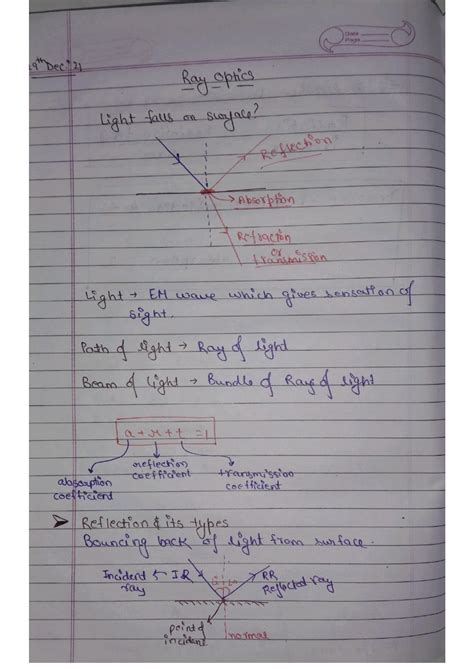 Date
Page
19th Dec'21
Ray Optics
Light falls on surface?
Reflection
Absorption
Refraction
or
transmission
Light → EM wave which gives sensation of
sight.
Path of light → Ray of light
Beam of light → Bundle of Rays of light
a+r+t =1
absorption
coefficient
reflection
coefficient
transmission
coefficient
➤ Reflection & its types
Bouncing back of light from surface.
Incident ← IR
ray
i r
RR
Reflected ray
point of
incident
normal